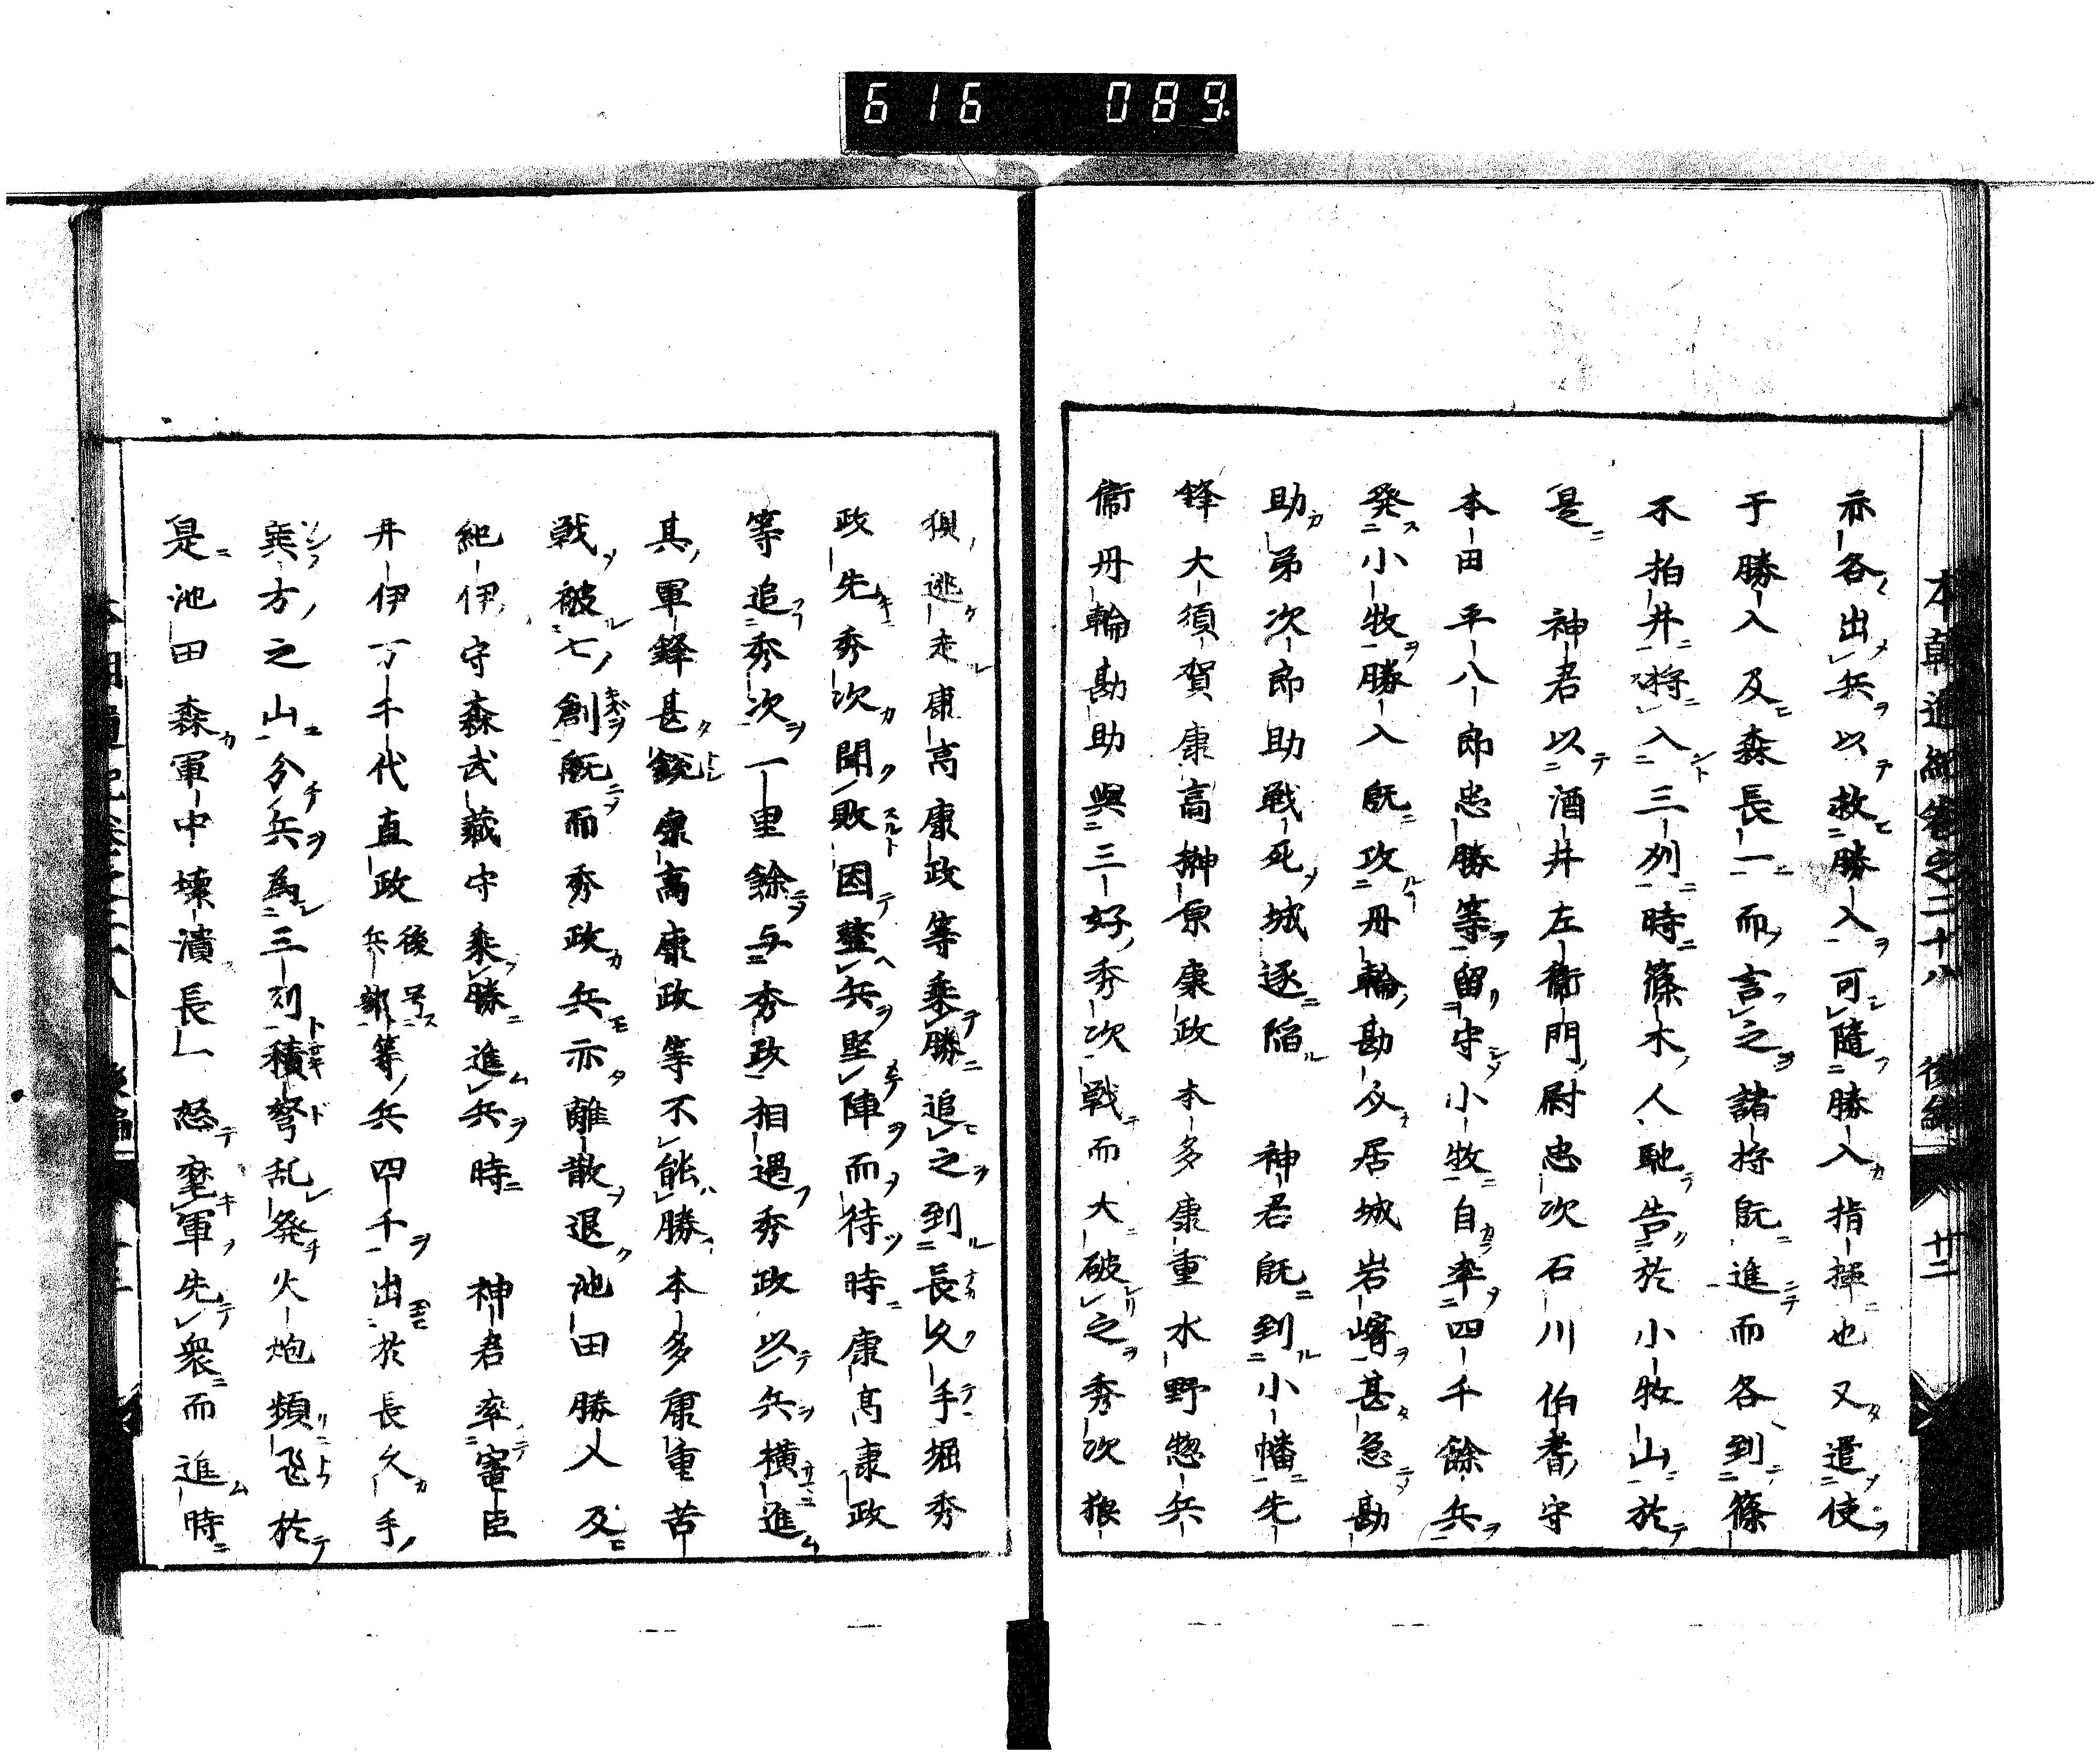 616 089
本朝通紀卷之二十八 後編 廿二
示各出兵以救勝入可隨勝入指揮也又遣使
于勝入及森長一而言之諸将既進而各到篠
木柏井将入三列時篠木人馳告於小牧山於
是 神君以酒井左衛門尉忠次石川伯耆守
本田平八郎忠勝等留守小牧自率四千餘兵
発小牧勝入既攻丹輪勘助居城岩﨑甚急勘
助弟次郎助戦死城逐陥 神君既到小幡先
鋒大須賀康高榊原康政本多康重水野惣兵
衞丹輪勘助與三好秀次戦而大破之秀次狼
狽逃走康高康政等乗勝追之到長久手堀秀
政先秀次聞敗因整兵堅陣而待時康高康政
等追秀次一里餘与秀政相遇秀政以兵横進
其軍鋒甚鋭康高康政等不能勝本多康重苦
戦被七創既而秀政兵亦離散退池田勝入及
紀伊守森武藏守乘勝進兵時 神君率審臣
井伊万千代直政後号兵部等兵四千出於長久手
巽方之山分兵為三列積弩乱発火炮頻飛於
是池田森軍中壊潰長一怒麾軍先衆而進時